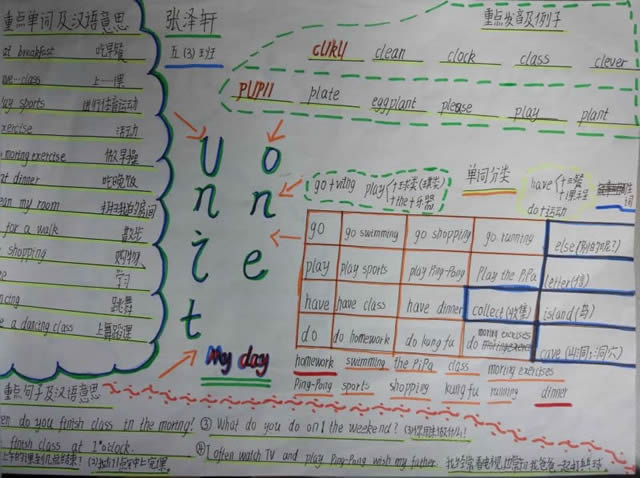 重点单词及汉语意思
at breakfast 吃早餐
we...class 上一课
lay sports 进行体育运动
exercise 活动
moring exercise 做早操
at dinner 吃晚饭
an my room 打扫我的房间
for a walk 散步
shopping 购物
学习
ncing 跳舞
e a dancing class 上舞蹈课
张泽轩
五(3)班
重点发音及例子
clean clock class clever
plate eggplant please play plant
Unit
One
My day
单词分类
go+ving
play
have
do+运动
go go swimming go shopping go running else(别的;其他)
play play sports play Ping-Pong Play the PiPa letter(信)
have have class have dinner collect(收集) island(岛)
do do homework do kung fu do moring exercises cave(山洞;洞穴)
homework swimming the PiPa class moring exercises
Ping-Pong sports shopping kung fu running dinner
重点句子及汉语意思
en do you finish class in the moring!
finish class at 1 o'clock.
③ What do you do on! the weekend?
④ I often watch TV and play Ping-Pong wish my father.